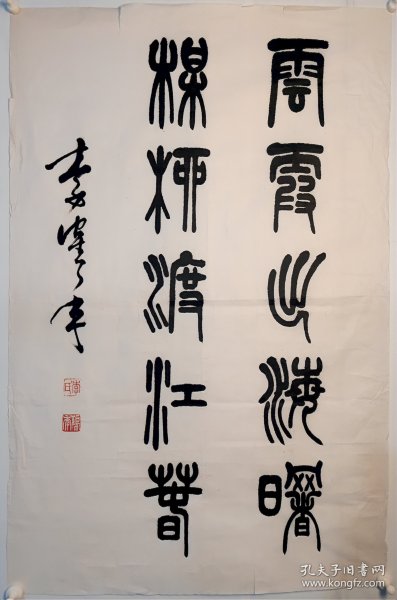 雲霞出海曙
楳柳渡江春
孔夫子旧书网
www.kongfz.com